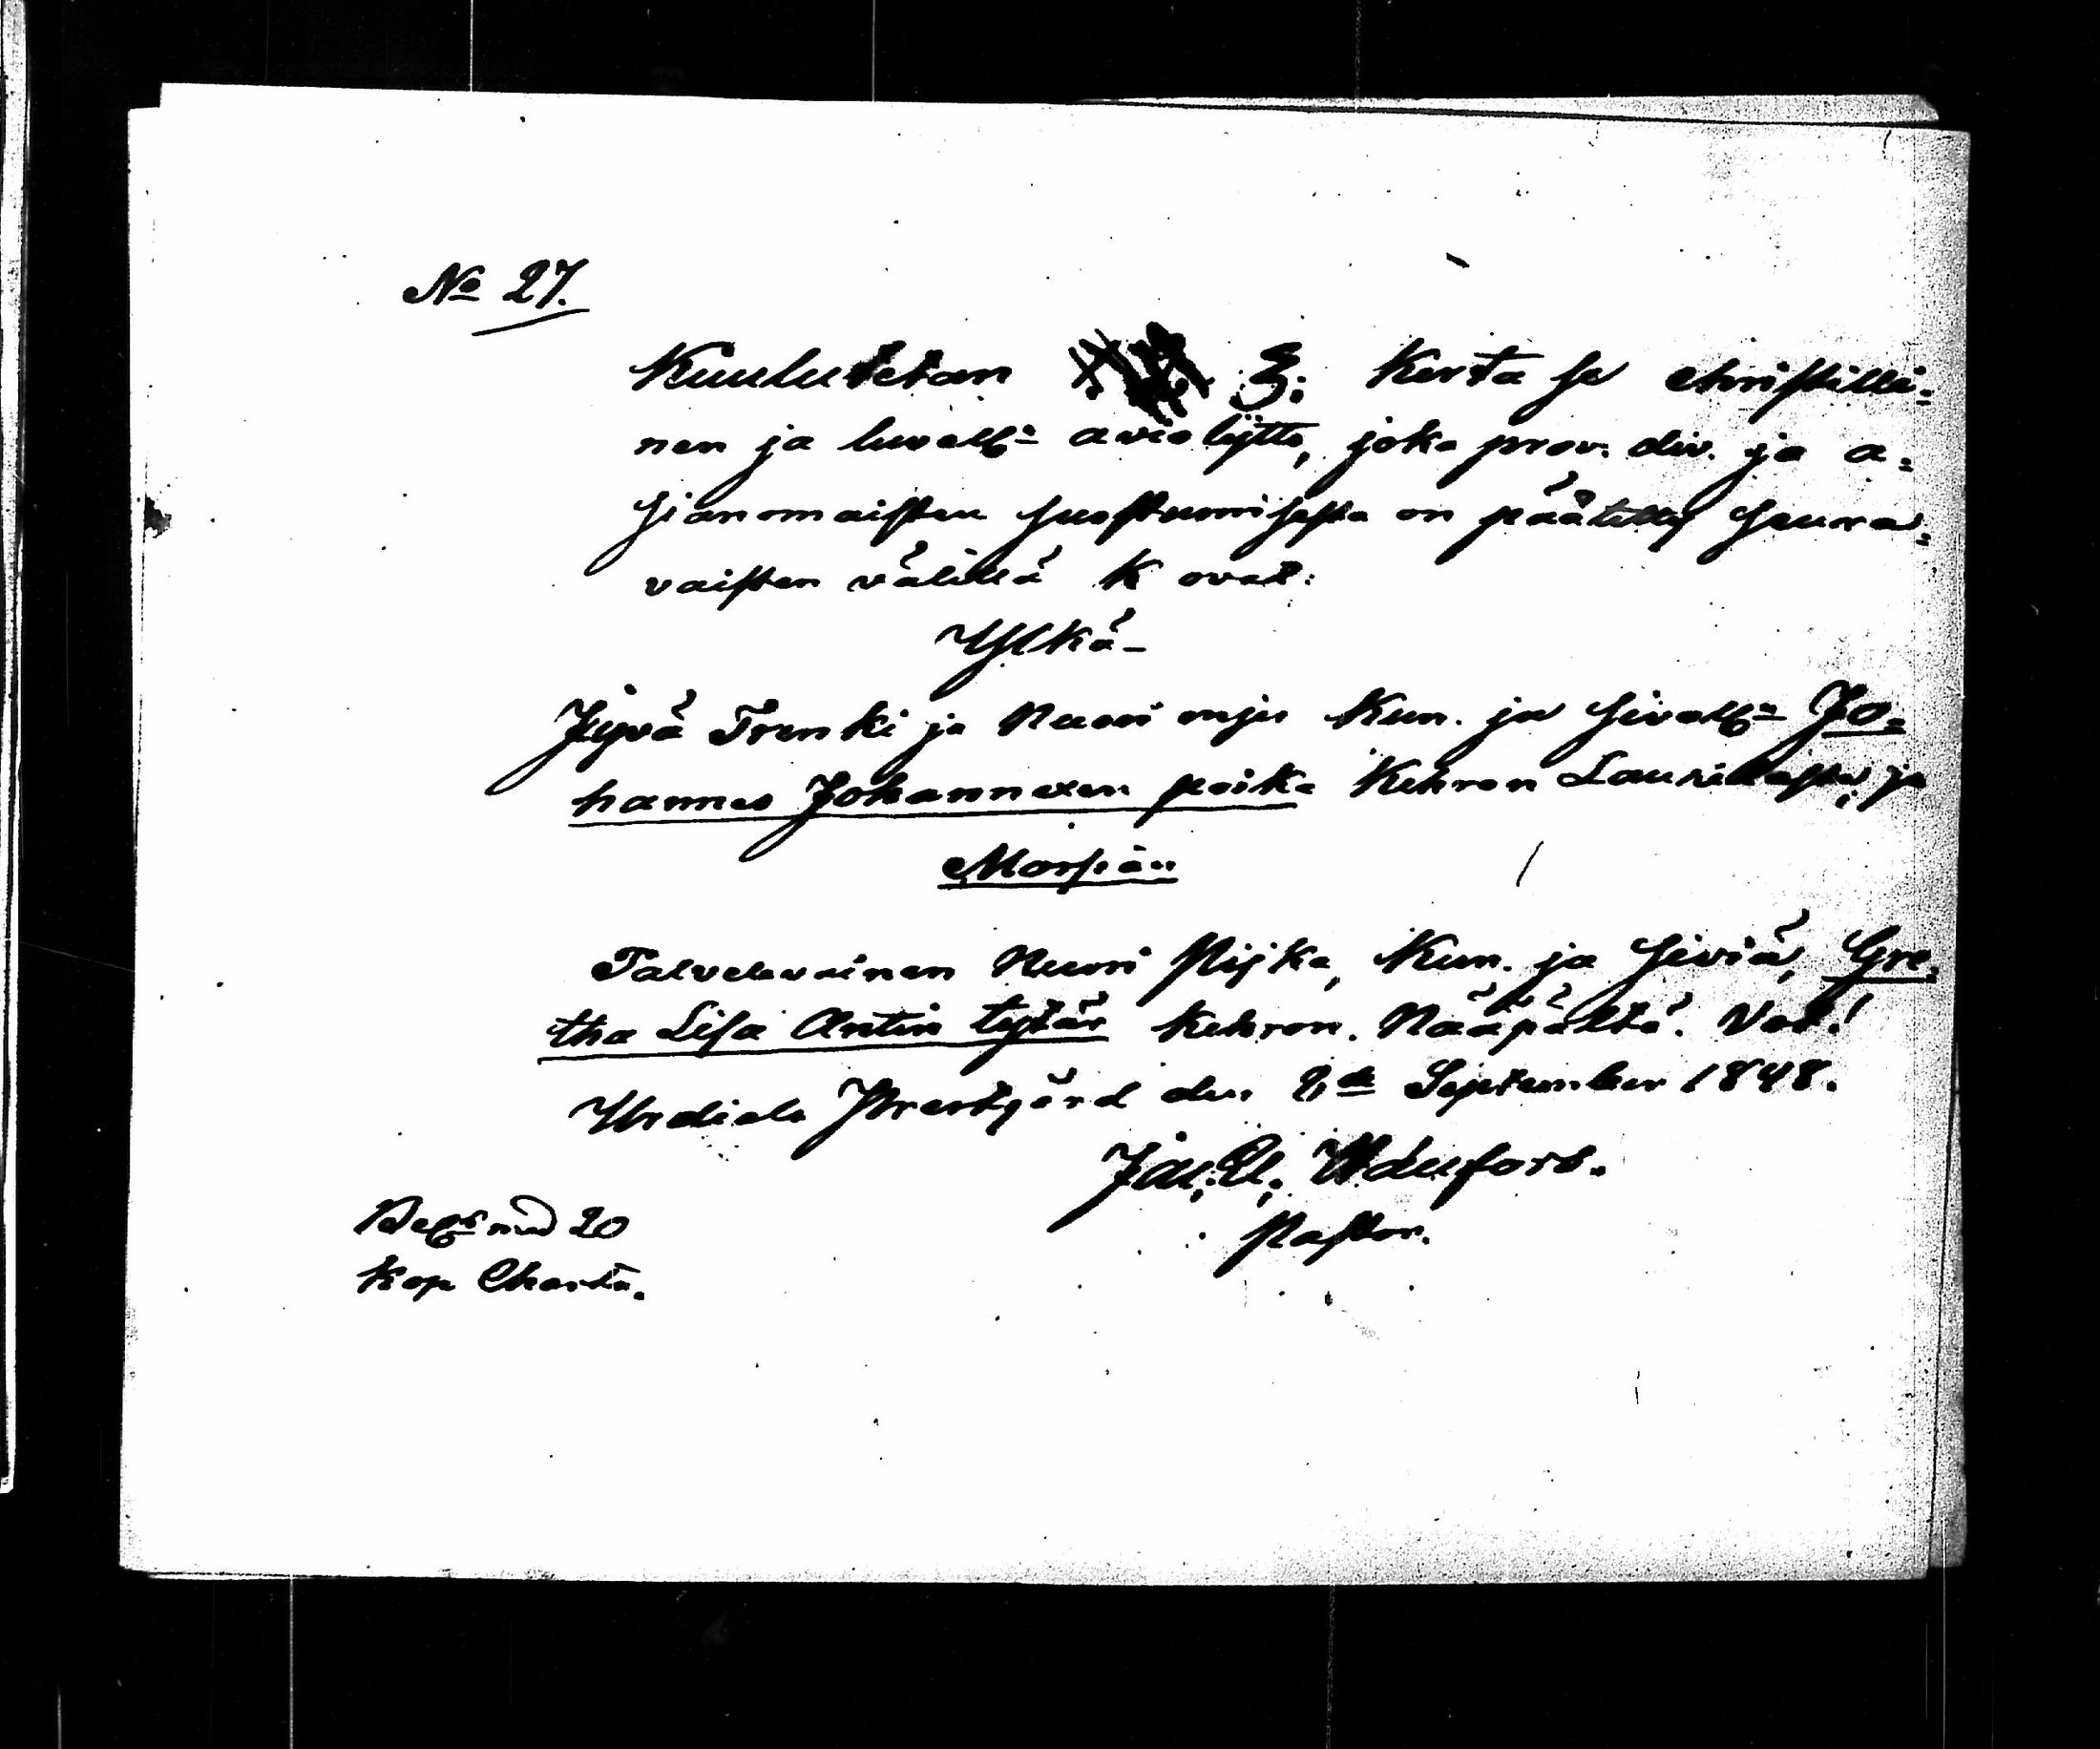 No 27.
Kuulutetan 3: Kerta se christilli=
nen ja luvall:n aviolijtto, joka prov. div. ja a=
sianomaisten suostumisesta on päätetty seura=
vaisten välillä K ovat:
Ylkä-
Jyvä Trenki ja Nuori mjes Kun. ja sivall:n Jo=
hannes Johannexen poika Kehron Laurilasta, ja
Morsian
Palvelevainen Nuori Pijka, Kun. ja Siviä, Gre=
tha Lisa Antin tytär Kehron. Nääpältä. Vot!
Urdiala Prestgård den 2de September 1848.
Pastor.
med 20
Kop Charta.